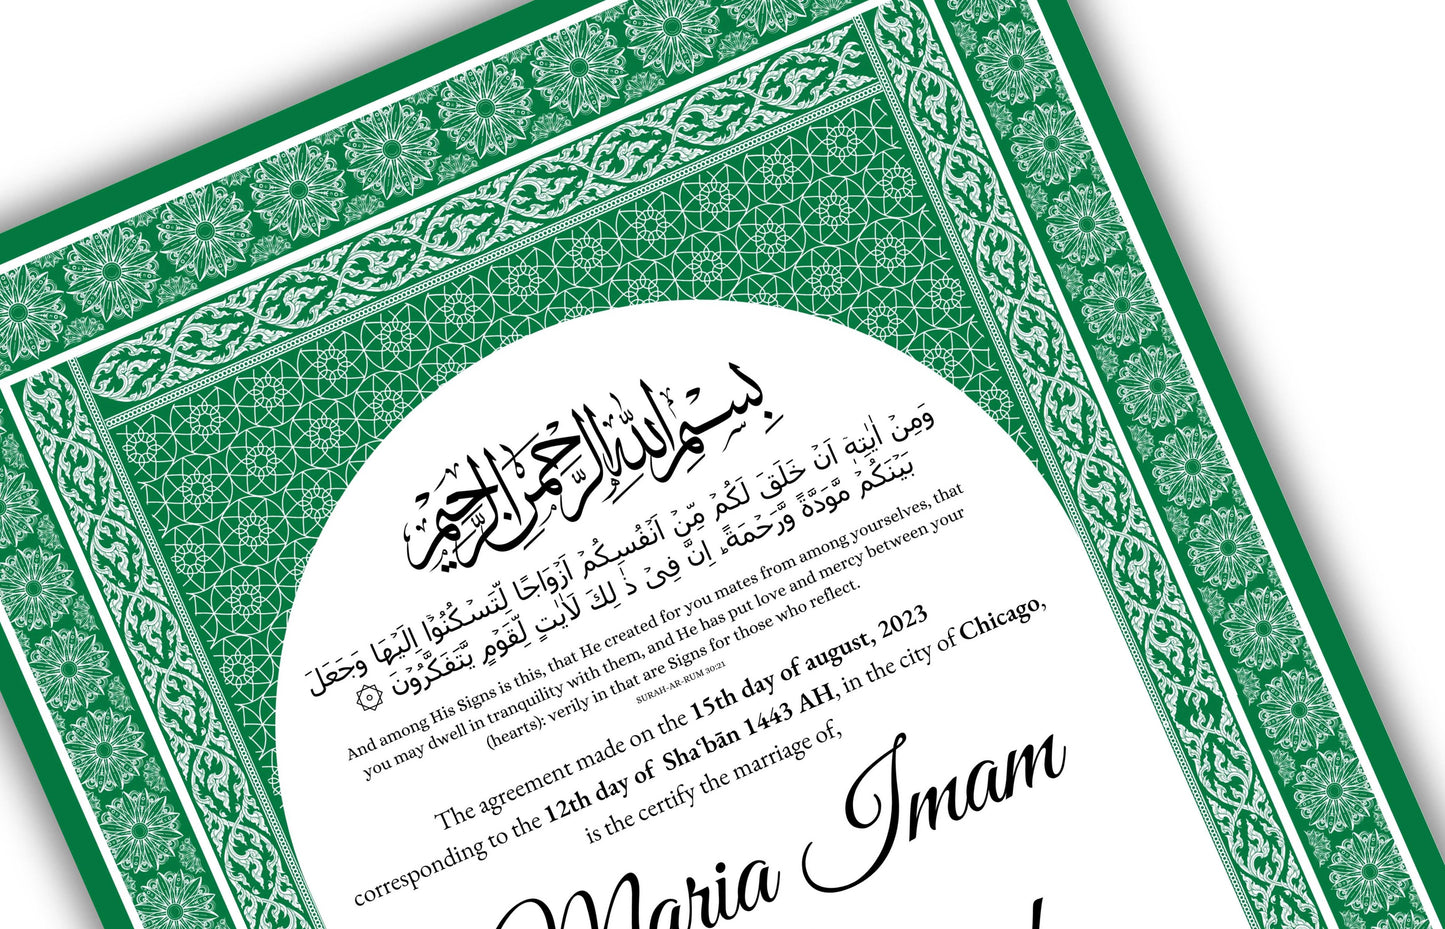 بِسْمِ اللهِ الرَّحْمٰنِ الرَّحِيْمِ
وَمِنْ اٰيٰتِهٖۤ اَنْ خَلَقَ لَكُمْ مِّنْ اَنْفُسِكُمْ اَزْوَاجًا لِّتَسْكُنُوْۤا اِلَيْهَا وَجَعَلَ
بَيْنَكُمْ مَّوَدَّةً وَّرَحْمَةً ؕ اِنَّ فِىْ ذٰ لِكَ لَاٰيٰتٍ لِّقَوْمٍ يَّتَفَكَّرُوْنَ ۞
And among His Signs is this, that He created for you mates from among yourselves, that
you may dwell in tranquility with them, and He has put love and mercy between your
(hearts): verily in that are Signs for those who reflect.
SURAH-AR-RUM 30:21
The agreement made on the 15th day of august, 2023
corresponding to the 12th day of Shaʿbān 1443 AH, in the city of Chicago,
is the certify the marriage of,
Maria Imam